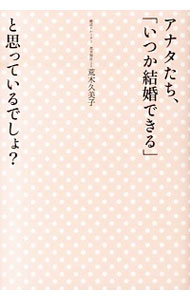 アナタたち、
「いつか結婚できる」
と思っているでしょ?
荒木久美子